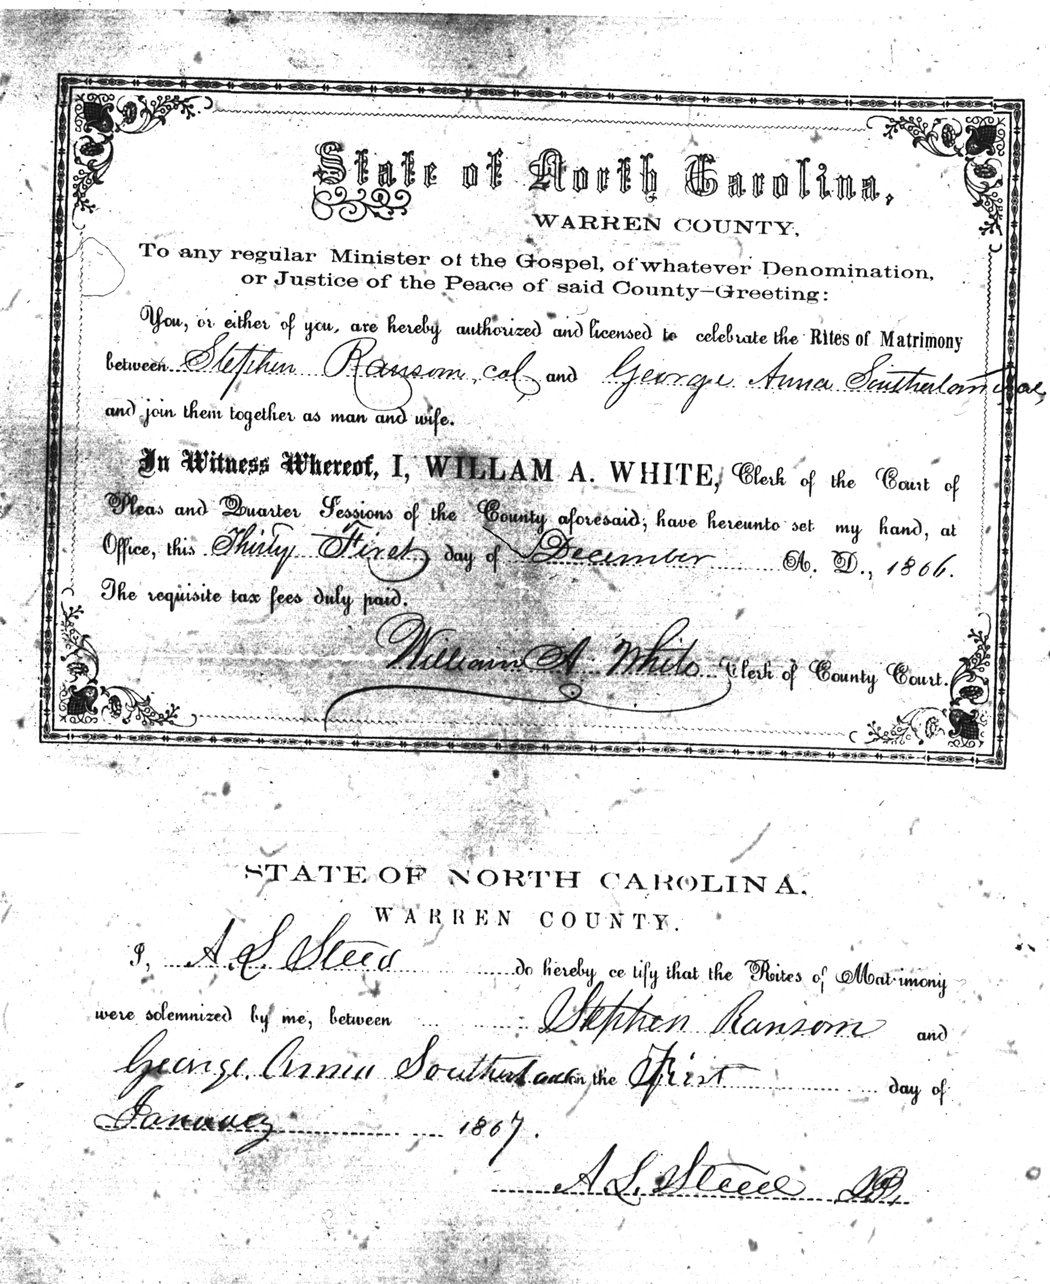 State of North Carolina,
WARREN COUNTY,
To any regular Minister of the Gospel, of whatever Denomination,
or Justice of the Peace of said County—Greeting:
You, or either of you, are hereby authorized and licensed to celebrate the Rites of Matrimony
between Stephen Ransom, col, and George Anna Southerland, col,
and join them together as man and wife.
In Witness Whereof, I, WILLAM A. WHITE, Clerk of the Court of
Pleas and Quarter Sessions of the County aforesaid, have hereunto set my hand, at
Office, this Thirty First day of December A. D., 1866.
The requisite tax fees duly paid.
William A White Clerk of County Court.
STATE OF NORTH CAROLINA.
WARREN COUNTY.
I, A. L. Steed do hereby ce tify that the Rites of Matrimony
were solemnized by me, between Stephen Ransom and
George Anna Southerland on the First day of
January 1867.
A. L. Steed